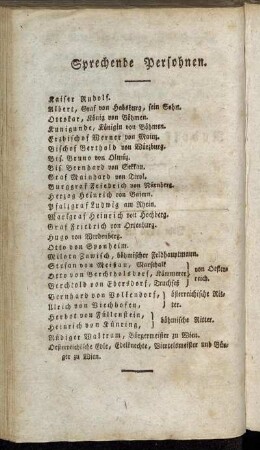 Sprechende Persohnen.
Kaiser Rudolf.
Albert, Graf von Habsburg, sein Sohn.
Ottokar, König von Böhmen.
Kunigunde, Königin von Böhmen.
Erzbischof Werner von Mainz.
Bischof Berthold von Würzburg.
Bis. Bruno von Olmüz.
Bis. Bernhard von Sekkau.
Graf Mainhard von Tirol.
Burggraf Friedrich von Nürnberg.
Herzog Heinrich von Baiern.
Pfalzgraf Ludwig am Rhein.
Markgraf Heinrich von Hochberg.
Graf Friedrich von Ortenburg.
Hugo von Werdenberg.
Otto von Sponheim.
Milota Zawisch, böhmischer Feldhauptmann.
Stefan von Meissau, Marschall
Otto von Berchtholdsdorf, Kämmerer
Berchtold von Ebersdorf, Truchseß
} von Oesterreich.
Bernhard von Volkendorf,
Ulrich von Viechhofen,
} österreichische Ritter.
Herbot von Füllenstein,
Heinrich von Künring,
} böhmische Ritter.
Rüdiger Waltram, Bürgermeister zu Wien.
Oesterreichische Edle, Edelknechte, Viertelsmeister und Bürger
zu Wien.